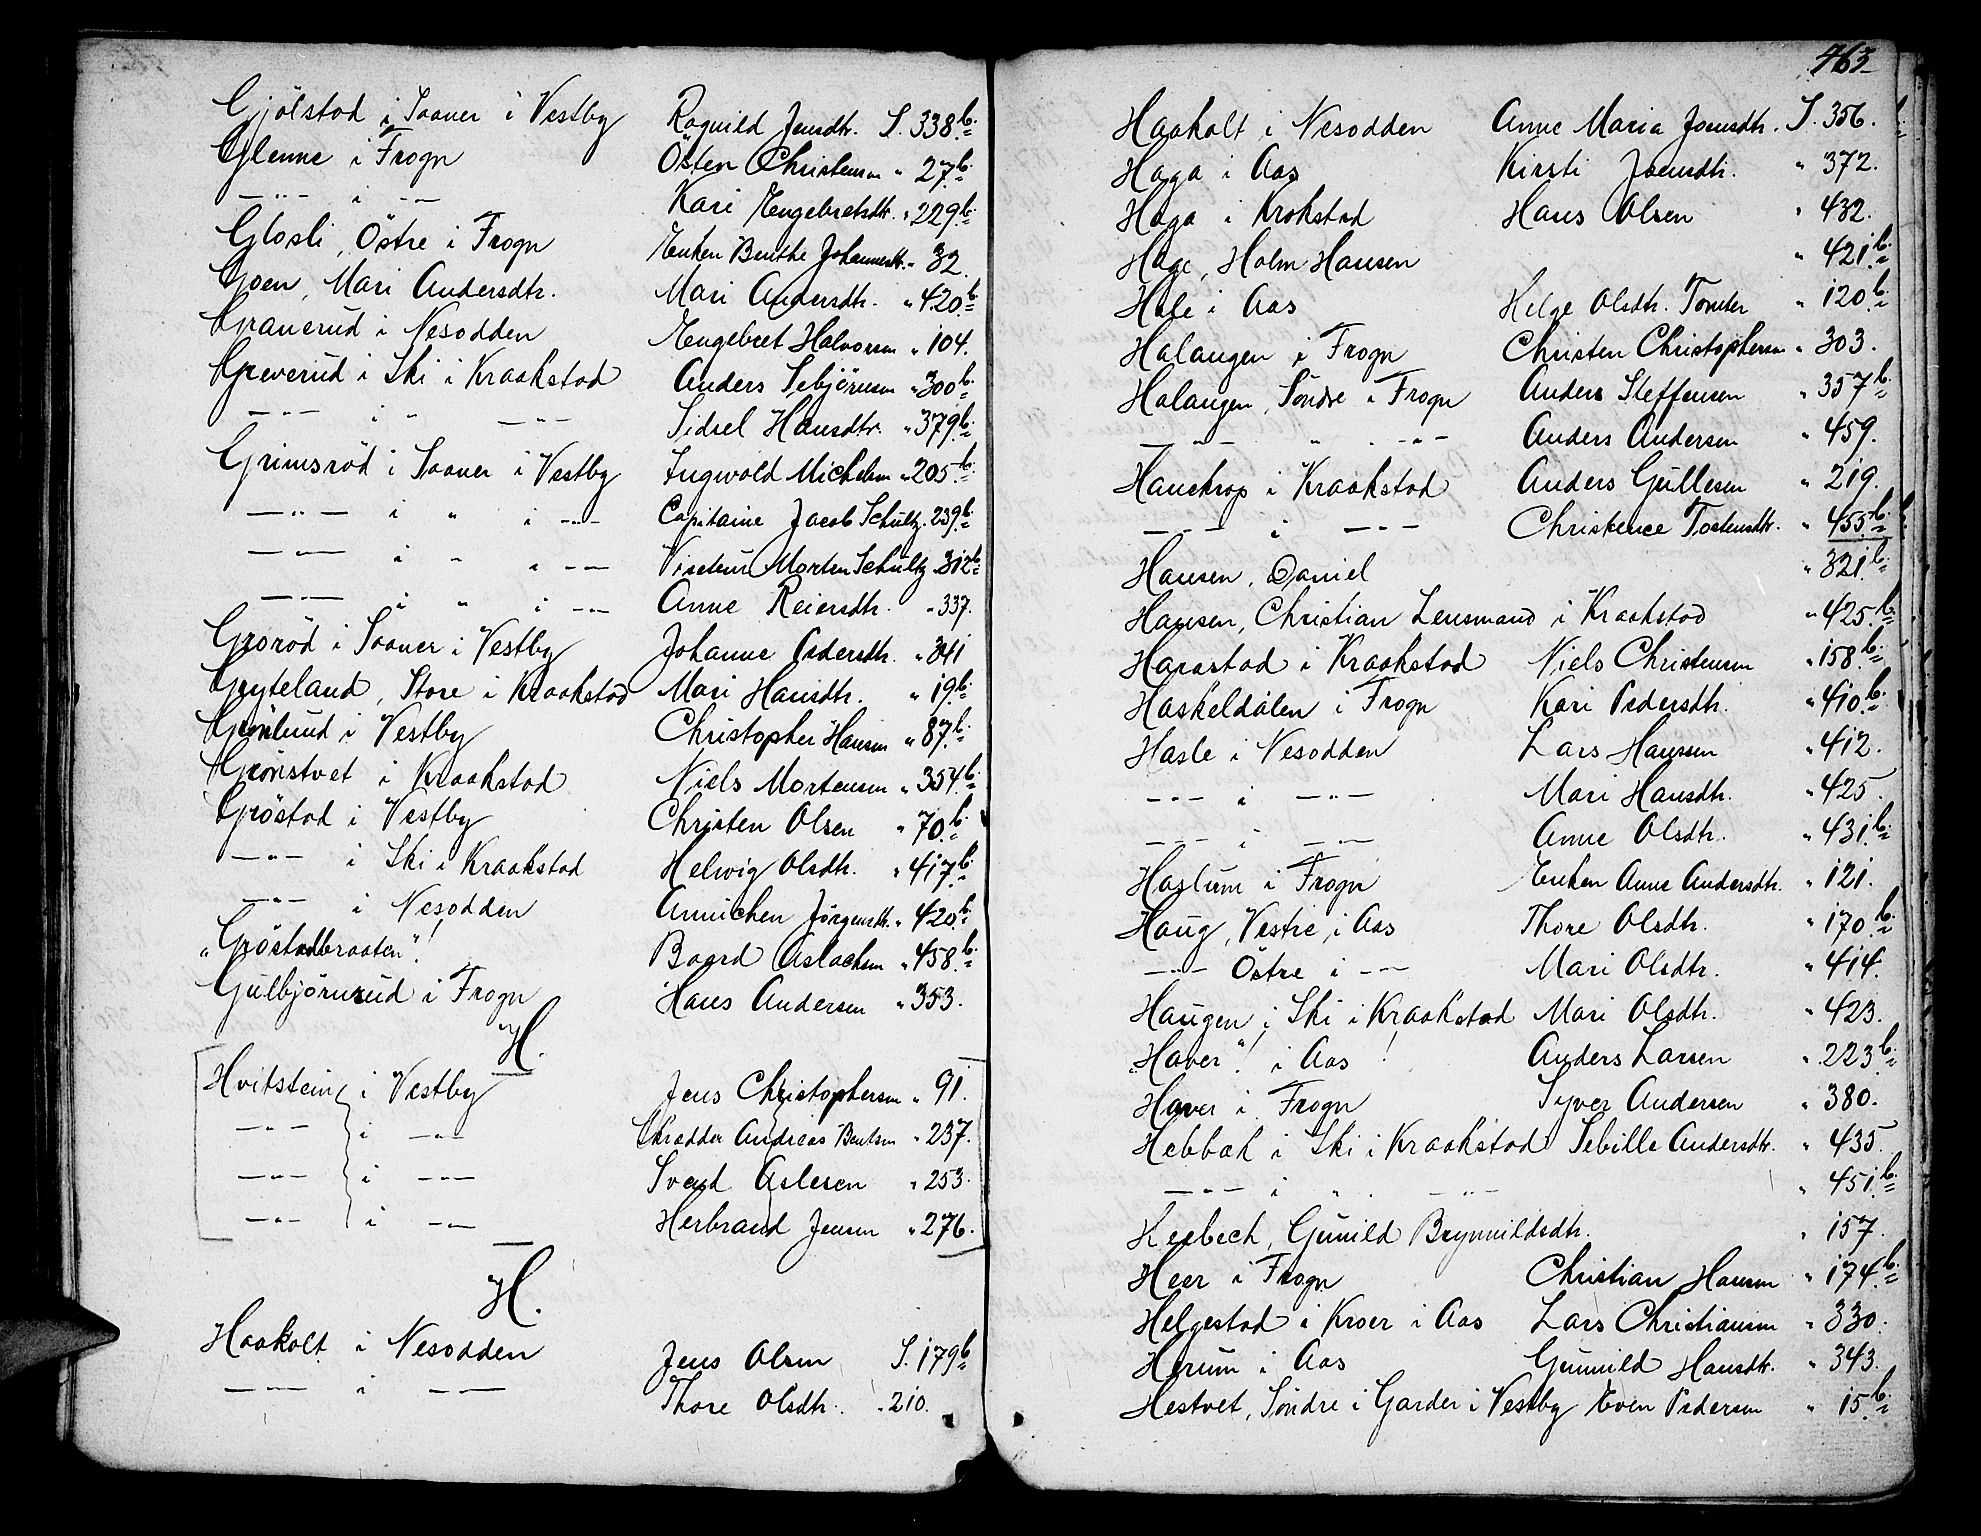 Gjölstad i Saaner i Vestby Rognild Jensdtr. S. 338.b.
Glenne i Frogn Östen Christensen " 27.b.
—"— i —"— Kari Engebretsdtr. " 229.b.
Glosli, Östre i Frogn Enken Benthe Johannesdtr. " 32.
Goen, Mari Andersdtr. Mari Andersdtr. " 420.b.
Granerud i Nesodden Engebret Halvorsen " 104.
Greverud i Ski i Kraakstad Anders Sebjörnsen " 300.b.
—"— i " —"— Sidsel Hansdtr. " 379.b.
Grimsröd i Saaner i Vestby Ingwold Michelsen " 205.b.
—"— i " i —"— Capitaine Jacob Schultz. 239.b.
—"— i " i —"— Visiteur Morten Schultz 312.b.
—"— i " i —"— Anne Reiersdtr. " 337.
Groröd i Saaner i Vestby Johanne Pedersdtr. " 341
Gryteland, Store i Kraakstad Mari Hansdtr. " 19.b.
Grönlund i Vestby Christopher Hansen " 87.b.
Grönstvet i Kraakstad Niels Mortensen " 354.b.
Gröstad i Vestby Christen Olsen " 70.b.
—"— i Ski i Kraakstad Helwig Olsdtr. " 417.b.
—"— i Nesodden Annichen Jörgensdtr. " 420.b.
"Gröstadbraaten"! Baard Aslachsen " 458.b.
Gulbjörnrud i Frogn Hans Andersen " 353.
H.
Hvitstein i Vestby Jens Christophersen " 91.
—"— i —"— Skrædder Andreas Bentsen " 237.
—"— i —"— Svend Aslesen " 253.
—"— i —"— Herbrand Jensen " 276.
H.
Haakolt i Nesodden Jens Olsen S. 179.b
—"— i —"— Thore Olsdtr. " 210.
463
Haakolt i Nesodden Anne Maria Joensdtr. S. 356.
Haga i Aas Kirsti Joensdtr. " 372.
Haga i Krokstad Hans Olsen " 432.
Hage, Holm Hansen " 421.b.
Hale i Aas Helge Olsdtr. Tomter " 120.b.
Halangen i Frogn Christen Christophersen " 303.
Halangen, Söndre i Frogn Anders Steffensen " 357.b.
—"— " . —"— Anders Andersen " 459.
Hanekrop i Kraakstad Anders Gullesen " 219.
—"— i —"— Christence Tostensdtr. " 455.b.
Hansen, Daniel " 321.b.
Hansen, Christian Lensmand i Kraakstad " 425.b.
Harastad i Kraakstad Niels Christensen " 158.b.
Haskeldalen i Frogn Kari Pedersdtr. " 410.b.
Hasle i Nesodden Lars Hanssen " 412.
—"— i —"— Mari Hansdtr. " 425.
—"— i —"— Anne Olsdtr. " 431.b.
Haslum i Frogn Enken Anne Andersdtr. " 121.
Haug, Vestre, i Aas Thore Olsdtr. " 170.b.
—"— Östre i —"— Mari Olsdtr. " 414.
Haugen i Ski i Kraakstad Mari Olsdtr. " 423.
"Haver"! i Aas! Anders Larsen " 223.b.
Haver i Frogn Syver Andersen " 380.
Hebbæk i Ski i Kraakstad Sebille Andersdtr. " 435.
—"— i " . —"— " 451.b.
Heebech, Gunild Brynnildsdtr. " 157.
Heer i Frogn Christian Hansen " 174.b.
Helgestad i Kroer i Aas Lars Christiansen " 330.
Herum i Aas Gunnild Hansdtr. " 343.
Hestvet, Söndre i Garder i Vestby Even Pedersen " 15.b.